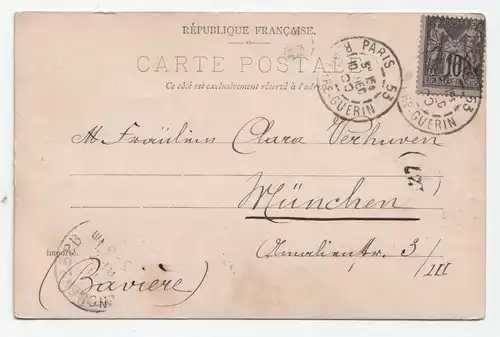 RÉPUBLIQUE FRANÇAISE.
CARTE POSTALE
Ce côté est exclusivement réservé à l'adresse
PARIS 53
GUÉRIN
10
53
GUÉRIN
Fräulein Clara Verhuven
München
Amalienstr. 3/III
(Bavière)